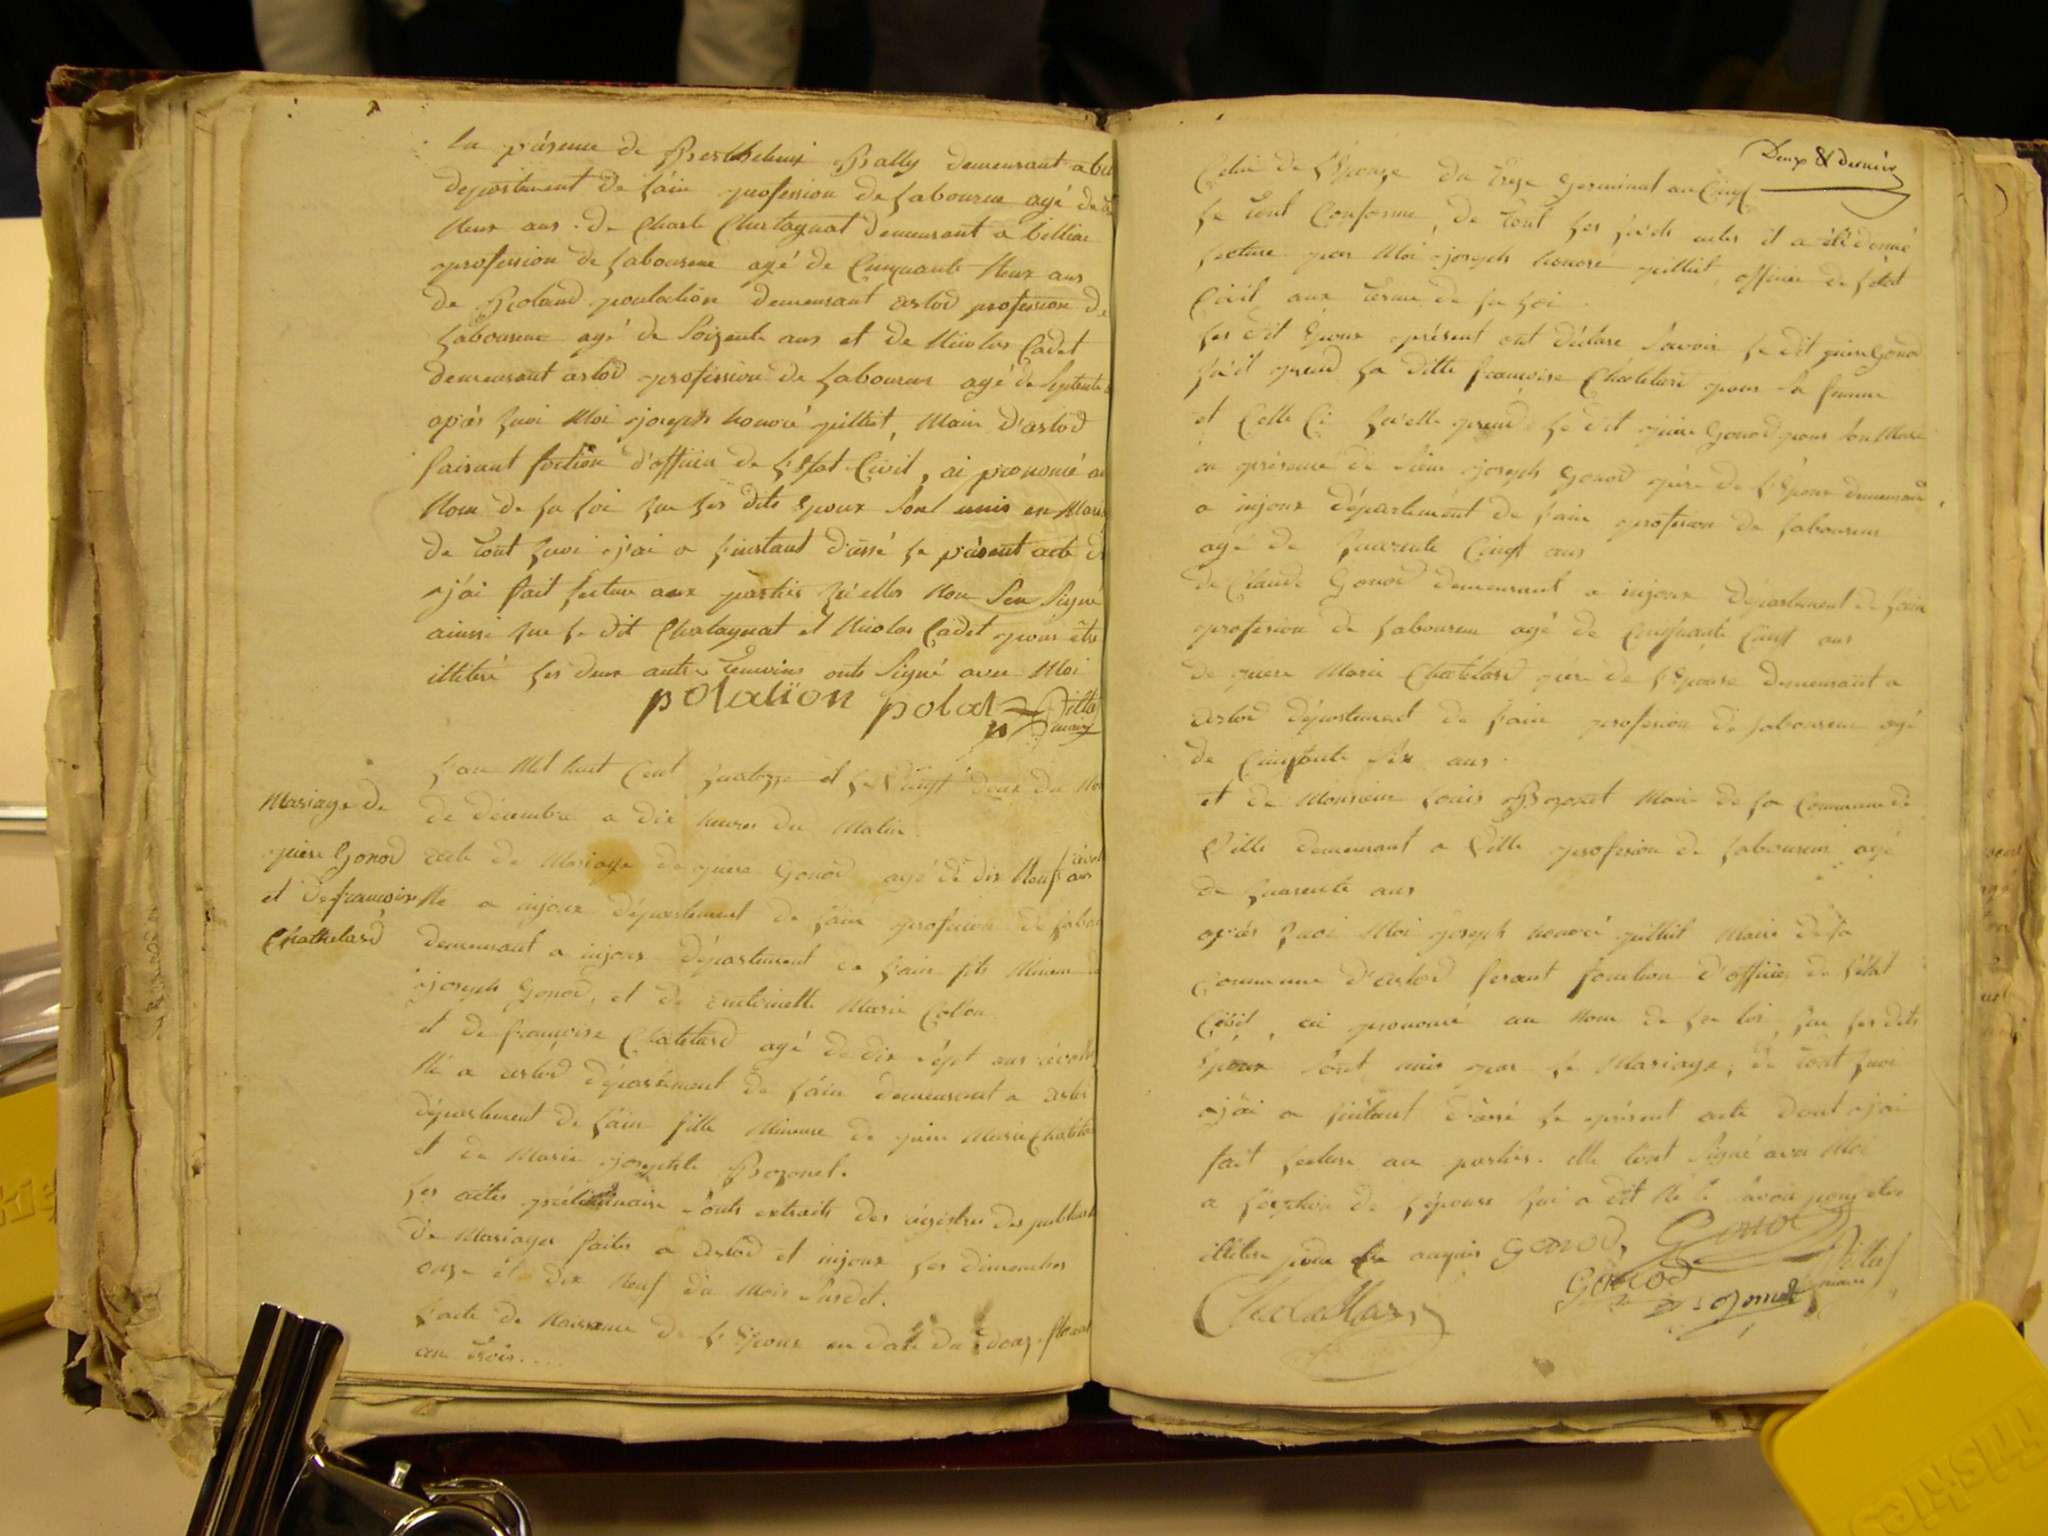 la présence de Berthelemi Bally demeurant a
département de l'ain profession de laboureur agé de
Neuf ans. de Charle Chatagnat demeurant a billiac
profession de laboureur agé de Cinquante Neuf ans
de Roland poulalion demeurant arlod profession de
laboureur agé de Soizente ans et de Nicolas Cadet
demeurant arlod profession de laboureur agé de Septente
après quoi Moi joseph honoré pilliet, Maire d'arlod
faisant fonction d'officier de l'Etat Civil, ai prononcé au
Nom de la loi que les dits Epoux sont unis en Maria
de tout quoi j'ai a l'instant dressé le présent acte
j'ai fait lecture aux parties qu'elles Non Seu Signé
ainssi que le dit Chatagnat et Nicolas Cadet pour être
illitéré les deux autre temoins onts Signé avec Moi
polalion polat
maire
L'an Mil huit Cent quatorze et le Vingt deux du Moi
de décembre a dix heures du Matin.
Mariage de
piere Gonod
et de françoise
Chathelard
acte de Mariage de piere Gonod agé de dix Neuf ans
Né a injoux département de l'ain profession de labou
demeurant a injoux département de l'ain fils Mineur
joseph Gonod, et de antoinette Marie Collon
et de françoise Chatelard agé de dix Sept ans révolu
Né a arlod département de l'ain demeurant a arlod
département de l'ain fille Mineure de piere Marie Chatela
et de Marie josephte Bozonet.
les actes préliminaire sonts extraits des régistres des publicat
de Mariages faites a arlod et injoux les dimenches
onze et dix Neuf du Mois Susdit.
l'acte de Naissance de l'Epoux en date du douze floreal
an trois....
Deux & dernier
Celui de l'Epouse du treze germinal an Cinq
le tout Conforme, de tout les quels actes il a été donné
lecture par Moi joseph honoré pilliet, officier de l'état
Civil aux terme de la loi.
les dit Epoux présent ont déclaré Savoir le dit piere Gonod
qu'il prend la ditte françoise Chatelard pour Sa femme
et Celle Ci qu'elle prend le dit piere Gonod pour Son Mari
en présence de Sieur joseph Gonod père de l'Epoux demeurant
a injoux département de l'ain profession de laboureur
agé de quarente Cinq ans
de Claude Gonod demeurant a injoux département de l'ain
profession de laboureur agé de Cinquante Cinq ans
de piere Marie Chatelard père de l'Epouse demeurant a
arlod département de l'ain profession de laboureur agé
de Cinquante Six ans.
et de Monsieur louis Bozonet Maire de la Commune de
Ville demeurant a Ville profession de laboureur agé
de quarente ans
après quoi Moi joseph honoré pilliet Maire de la
Commune d'arlod ferant fonction d'officier de l'état
Civil, ai prononcé au Nom de la loi, que les dits
Epoux Sont unis par le Mariage, de tout quoi
j'ai a l'instant dressé le présent acte dont j'ai
fait lecture aux parties. elle l'ont Signé avec Moi
a l'exeption de l'épouse qui a dit Ne le Savoir pour etre
illitere pour ce anquis gonod, Gonod
Gonod Bozonet maire
Chatelard